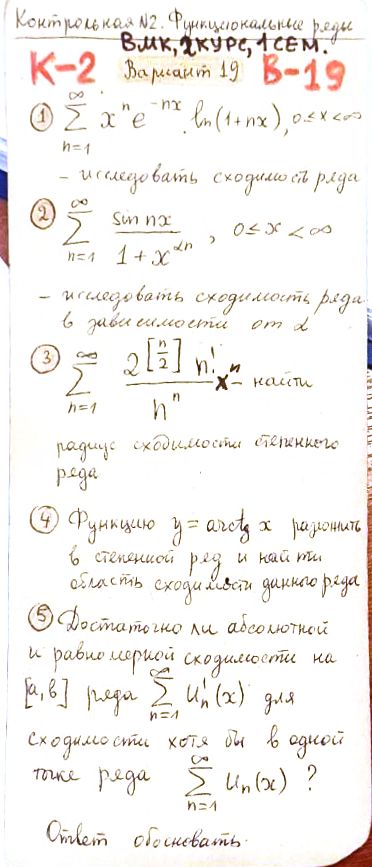 Контрольная №2. Функциональные ряды
ВМК, 2 КУРС, 1 СЕМ.
К-2 Вариант 19 В-19
① ∑_{n=1}^{∞} xⁿ e^{-nx} · ln(1+nx), 0≤x<∞
- исследовать сходимость ряда
② ∑_{n=1}^{∞} \frac{sin nx}{1+x^{αn}}, 0≤x<∞
- исследовать сходимость ряда
в зависимости от α
③ ∑_{n=1}^{∞} \frac{2^{[n/2]} n!}{nⁿ} xⁿ - найти
радиус сходимости степенного
ряда
④ Функцию y = arctg x разложить
в степенной ряд и найти
область сходимости данного ряда
⑤ Достаточно ли абсолютной
и равномерной сходимости на
[a,b] ряда ∑_{n=1}^{∞} u'ₙ(x) для
сходимости хотя бы в одной
точке ряда ∑_{n=1}^{∞} uₙ(x) ?
Ответ обосновать.